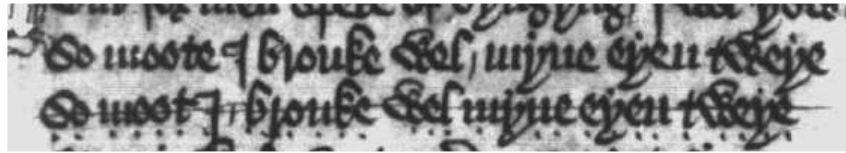 So moote I brouke wel / myne eyen tweye
So moot I brouke wel myne eyen tweye